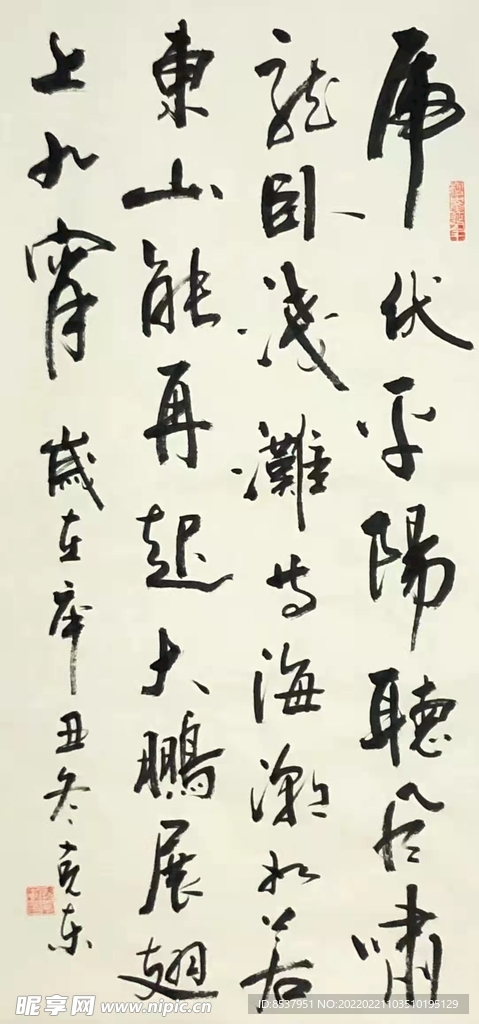 虎伏平陽聽風嘯
龍卧淺灘等海潮如若
東山能再起大鵬展翅
上九霄 歲在辛丑冬克东
昵享网 www.nipic.cn
ID:8537951 NO:20220221103510195129